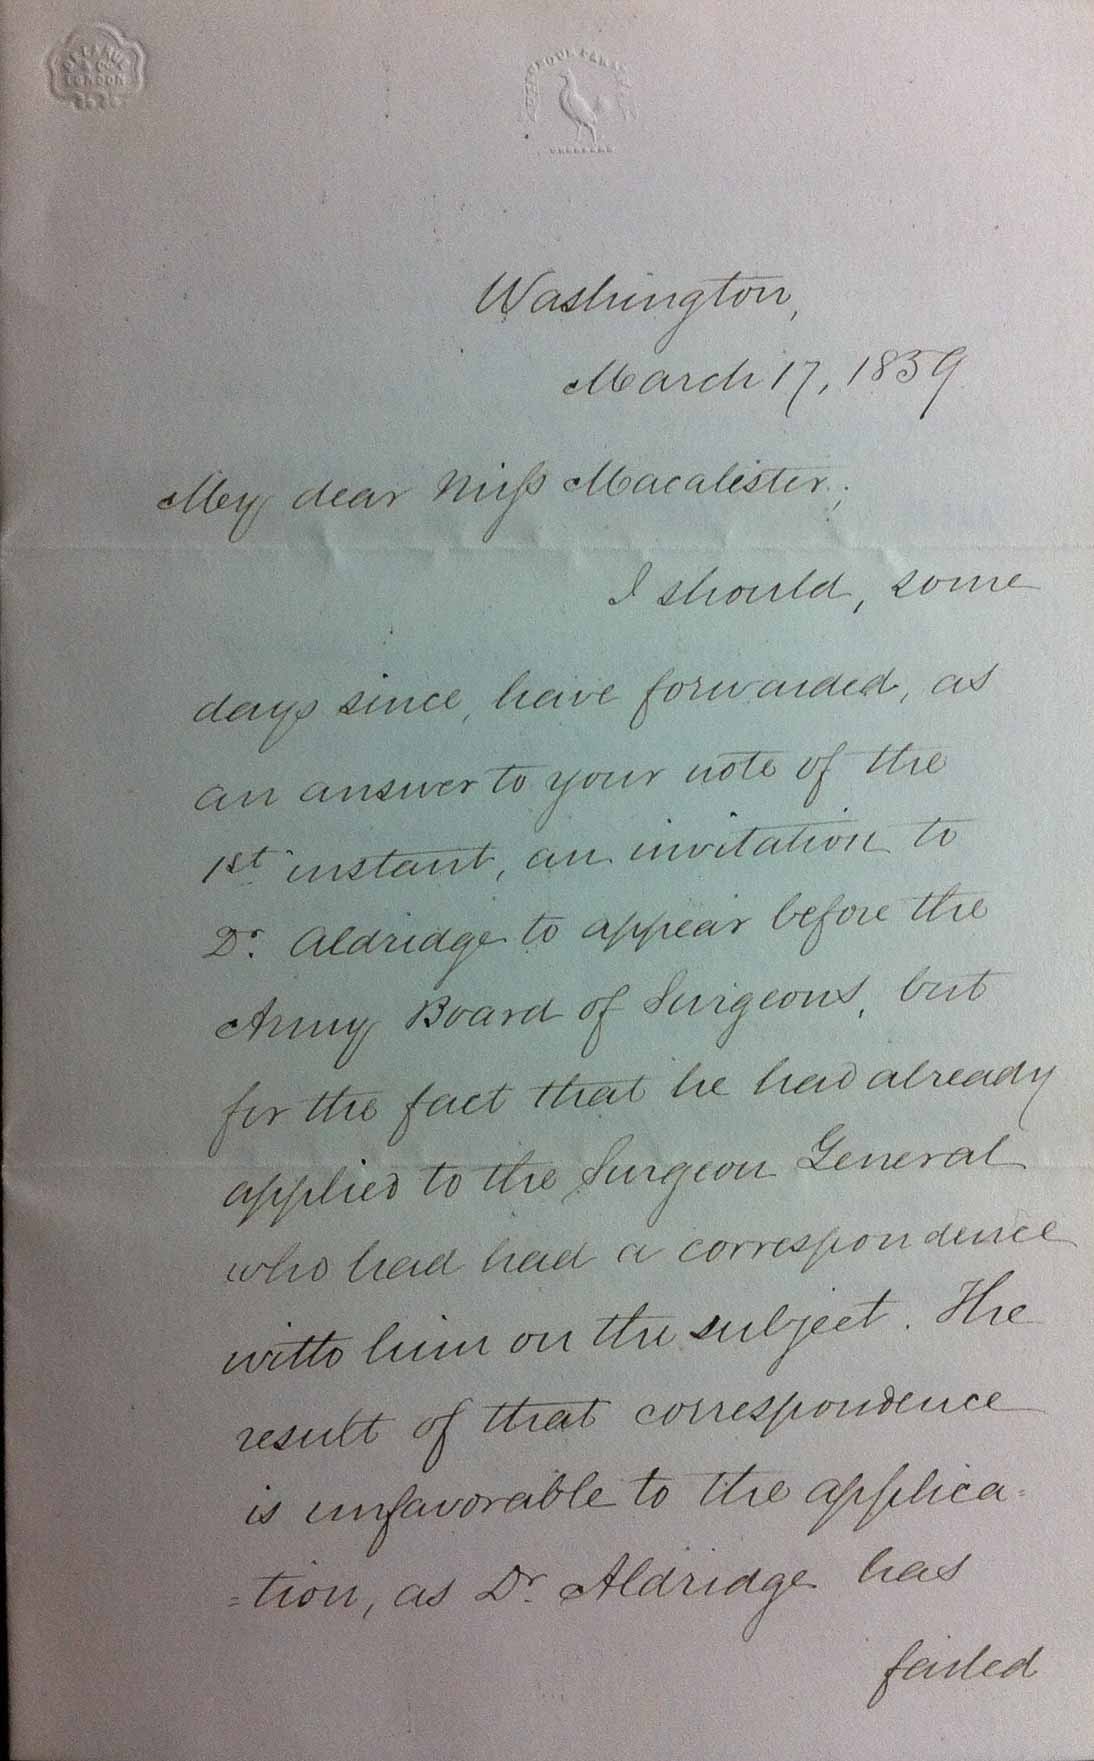 DE LA RUE
& CO.
LONDON
Washington,
March 17, 1859
My dear Miss Macalister;
I should, some
days since, have forwarded, as
an answer to your note of the
1st instant, an invitation to
Dr. Aldridge to appear before the
Army Board of Surgeons, but
for the fact that he had already
applied to the Surgeon General
who had had a correspondence
with him on the subject. The
result of that correspondence
is unfavorable to the applica=
=tion, as Dr. Aldridge has
failed